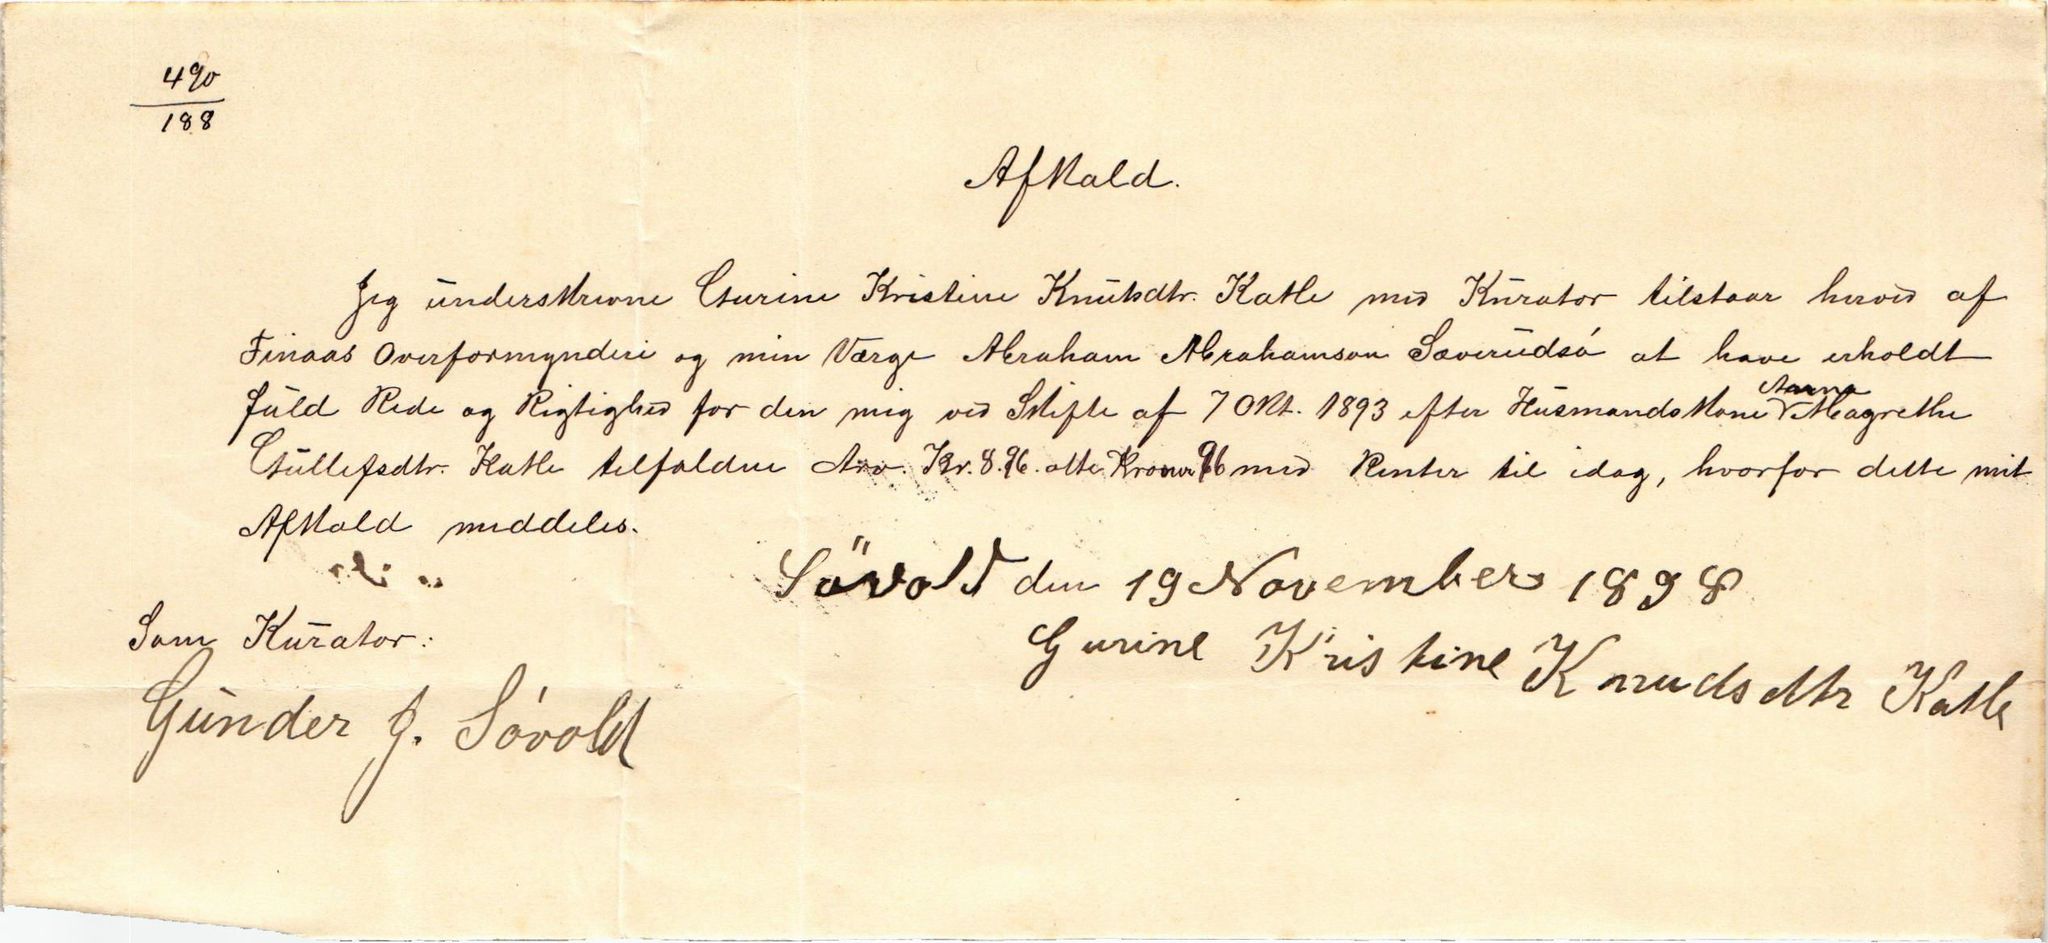 490
188
Afkald.
Jeg underskrevne Gurine Kristine Knutsdtr. Katle med Kurator tilstaar herved af
Finaas Overformynderi og min Værge Abraham Abrahamson Sæverudsó at have erholdt
fuld Rede og Rigtighed for den mig ved Skifte af 7 Okt. 1893 efter Husmandskone Aarna Magrethe
Gullefsdtr. Katle tilfaldne Arv. Kr. 8.96. otte Kroner 96 med Renter til idag, hvorfor dette mit
Afkald meddeles.
Sövold den 19 November 1898
Som Kurator:
Gurine Kristine Knudsdtr Katle
Gunder J. Sóvold